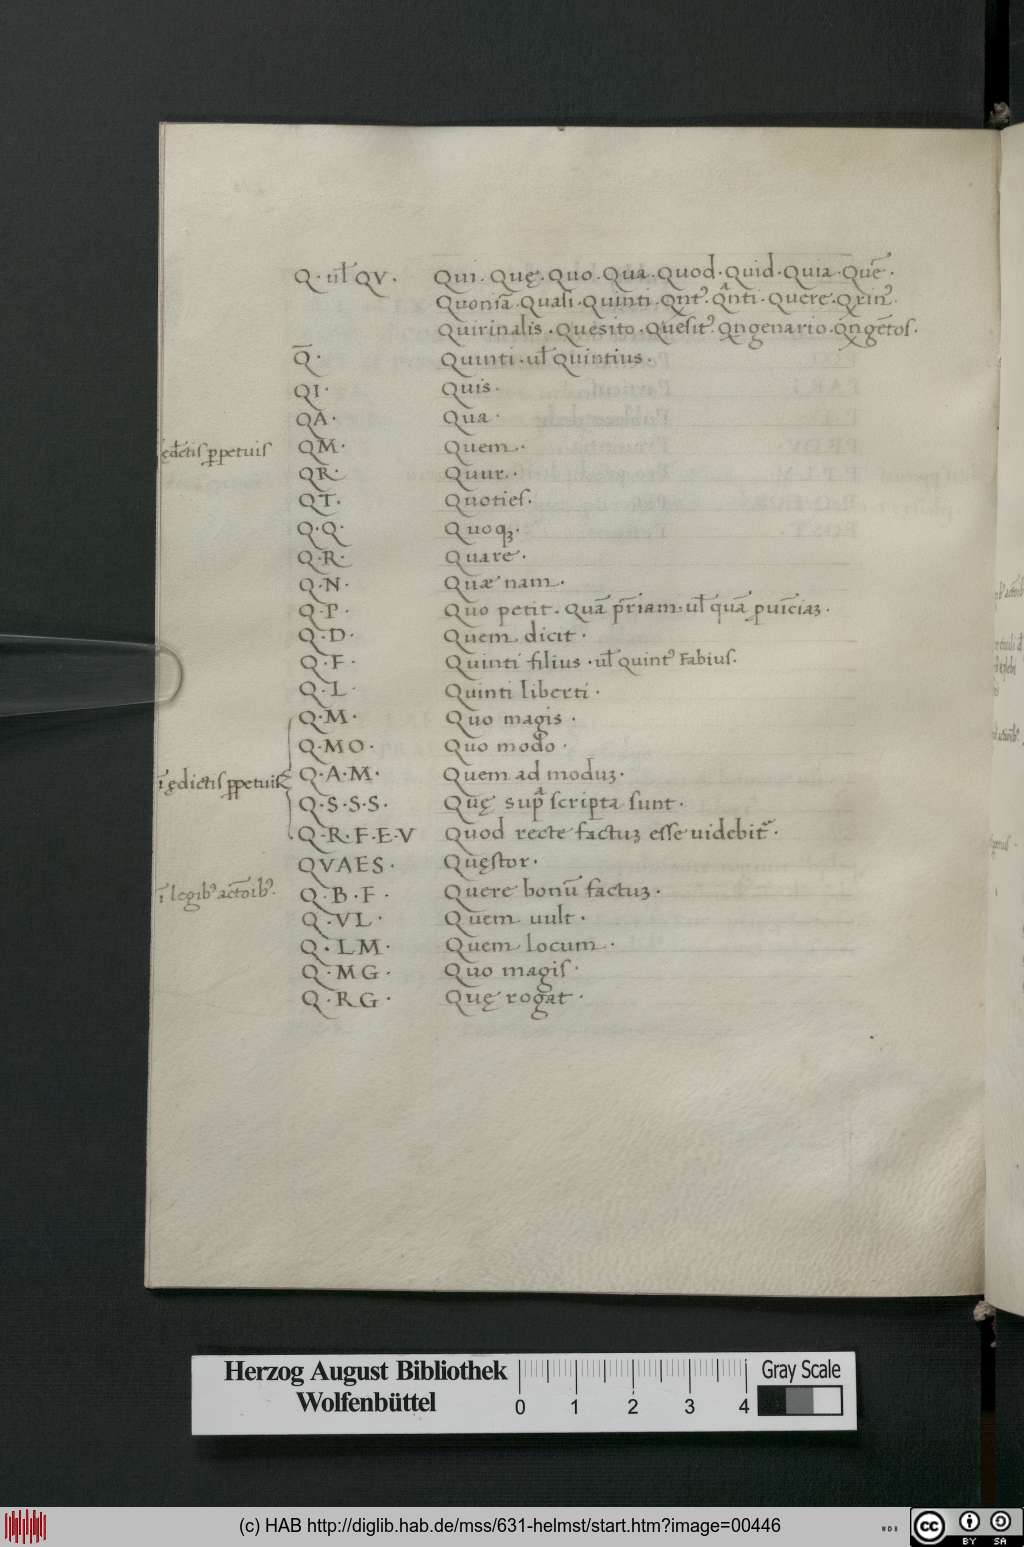 Q · ul̄ QV · Qui · Quę · Quo · Qua · Quod · Quid · Quia · Quē ·
Quoniā · Quasi · Quinti · Qnt᾿ · Qnti · Quere ·
Quirinalis · Quesito · Quesit᾿ · Qngenario · Qngētos ·
Q̄ · Quinti · ul̄ Quintius ·
QI · Quis ·
QA · Qua ·
ędctis ꝑpetuis QM · Quem ·
QR · Quur ·
QT · Quoties ·
Q · Q · Quoqꝫ ·
Q · R · Quare ·
Q · N · Quæ nam ·
Q · P · Quo petit · Quā pr̄iam · ul̄ quā ꝓuīciaꝫ ·
Q · D · Quem dicit ·
Q · F · Quinti filius · ul̄ quint᾿ Fabius ·
Q · L · Quinti liberti ·
Q · M · Quo magis ·
Q · MO · Quo modo ·
ī ędictis ꝑpetuis Q · A · M · Quem ad moduꝫ ·
Q · S · S · S · Quę sup̄ scripta sunt ·
Q · R · F · E · V Quod recte factuꝫ esse uidebit᾿ ·
QVAES · Quęstor ·
ī legib᾿ actōib᾿ · Q · B · F · Quere bonū factuꝫ ·
Q · VL · Quem uult ·
Q · LM · Quem locum ·
Q · MG · Quo magis ·
Q · RG · Quę rogat ·
Herzog August Bibliothek
Wolfenbüttel
0 1 2 3 4
Gray Scale
(c) HAB http://diglib.hab.de/mss/631-helmst/start.htm?image=00446
WDB
cc BY SA